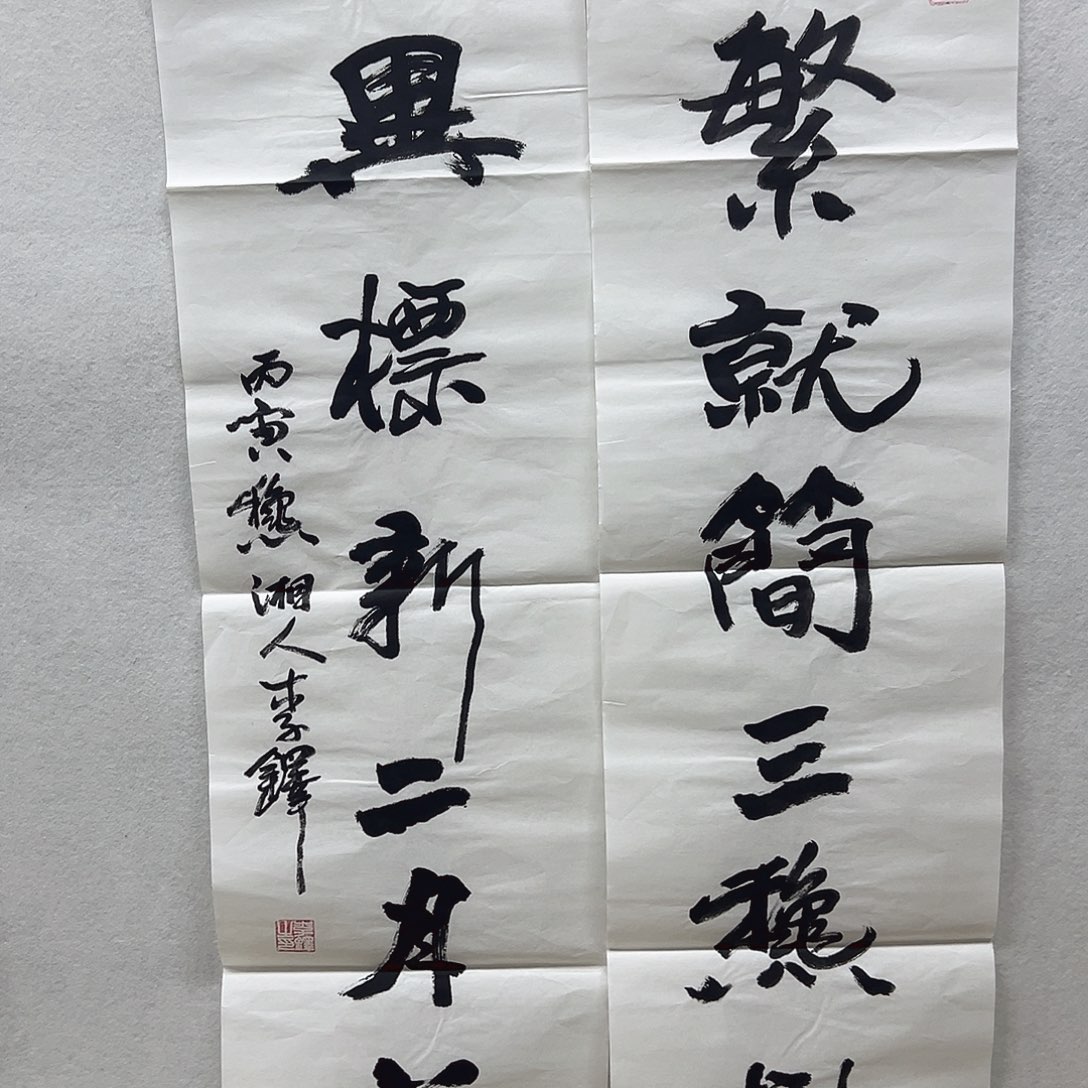 繁就簡三龝
異標新二月
丙寅龝湘人李鐸
李鐸之印